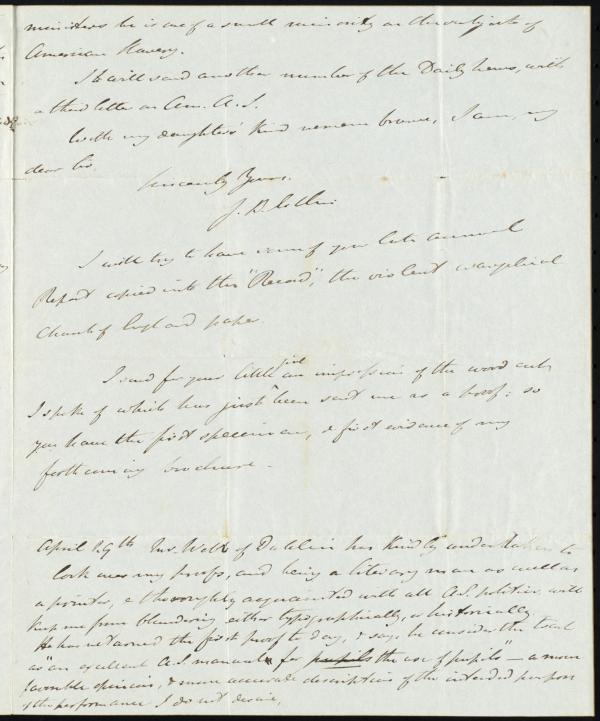 ministers he is one of a small minority on the subject of
American Slavery.
I will send another number of the Daily News, with
a third letter on Am. A. S.
With my daughters' kind remembrance, I am, my
dear Sir
Sincerely Yours.
J. B. Estlin
I will try to have some of your late annual
Report copied into the "Record", the violent evangelical
Church of England paper.
I send for your little girl an impression of the wood cut
I spoke of which has just been sent me as a proof: so
you have the first specimen, & first evidence of my
forthcoming brochure -
April 29th Mr. Webb of Dublin has kindly undertaken to
look over my proofs, and being a literary man as well as
a printer, & thoroughly acquainted with all A.S. politics will
keep me from blundering either typographically, or historically.
He has returned the first proof to day, & says, he considers the tract
as "an excellent A.S. manual for pupils the use of pupils" - a more
favorable opinion, & more accurate description of the intended purpose
of the performance I do not desire,